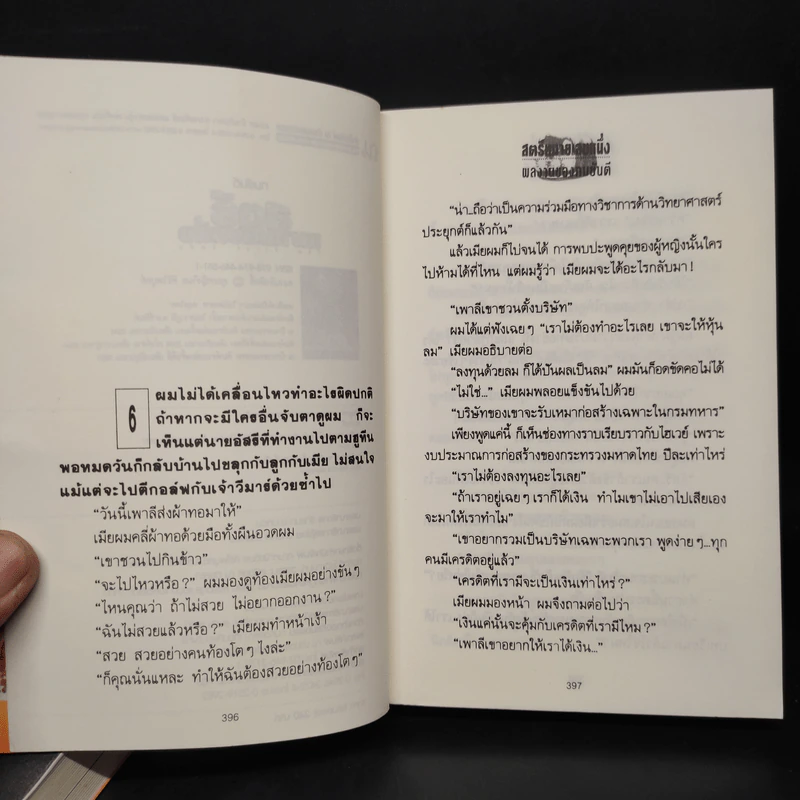 6
ผมไม่ได้เคลื่อนไหวทำอะไรผิดปกติ
ถ้าหากจะมีใครอื่นจับตาดูผม ก็จะ
เห็นแต่นายอัสรีที่ทำงานไปตามฮูทีน
พอหมดวันก็กลับบ้านไปขลุกกับลูกกับเมีย ไม่สนใจ
แม้แต่จะไปตีกอล์ฟกับเจ้าวีมาร์ด้วยซ้ำไป
“วันนี้เพาลีส่งผ้าทอมาให้”
เมียผมคลี่ผ้าทอด้วยมือทั้งผืนอวดผม
“เขาชวนไปกินข้าว”
“จะไปไหวหรือ?” ผมมองดูท้องเมียผมอย่างขันๆ
“ไหนคุณว่า ถ้าไม่สวย ไม่อยากออกงาน?”
“ฉันไม่สวยแล้วหรือ?” เมียผมทำหน้าเง้า
“สวย สวยอย่างคนท้องโตๆ ไงล่ะ”
“ก็คุณนั่นแหละ ทำให้ฉันต้องสวยอย่างท้องโตๆ”
396
สตรีหมายเลขหนึ่ง
“น่า..ถือว่าเป็นความร่วมมือทางวิชาการด้านวิทยาศาสตร์
ประยุกต์ก็แล้วกัน”
แล้วเมียผมก็ไปจนได้ การพบปะพูดคุยของผู้หญิงนั้นใคร
ไปห้ามได้ที่ไหน แต่ผมรู้ว่า เมียผมจะได้อะไรกลับมา!
“เพาลีเขาชวนตั้งบริษัท”
ผมได้แต่ฟังเฉยๆ “เราไม่ต้องทำอะไรเลย เขาจะให้หุ้น
ลม” เมียผมอธิบายต่อ
“ลงทุนด้วยลม ก็ได้ปันผลเป็นลม” ผมมันก็อดขัดคอไม่ได้
“ไม่ใช่...” เมียผมพลอยแข็งขันไปด้วย
“บริษัทของเขาจะรับเหมาก่อสร้างเฉพาะในกรมทหาร”
เพียงพูดแค่นี้ ก็เห็นช่องทางราบเรียบราวกับไฮเวย์ เพราะ
งบประมาณการก่อสร้างของกระทรวงมหาดไทย ปีละเท่าไหร่
“เราไม่ต้องลงทุนอะไรเลย”
“ถ้าเราอยู่เฉยๆ เราก็ได้เงิน ทำไมเขาไม่เอาไปเสียเอง
จะมาให้เราทำไม”
“เขาอยากรวมเป็นบริษัทเฉพาะพวกเรา พูดง่ายๆ...ทุก
คนมีเครดิตอยู่แล้ว”
“เครดิตที่เรามีจะเป็นเงินเท่าไหร่?”
เมียผมมองหน้า ผมจึงถามต่อไปว่า
“เงินแค่นั้นจะคุ้มกับเครดิตที่เรามีไหม?”
“เพาลีเขาอยากให้เราได้เงิน...”
397